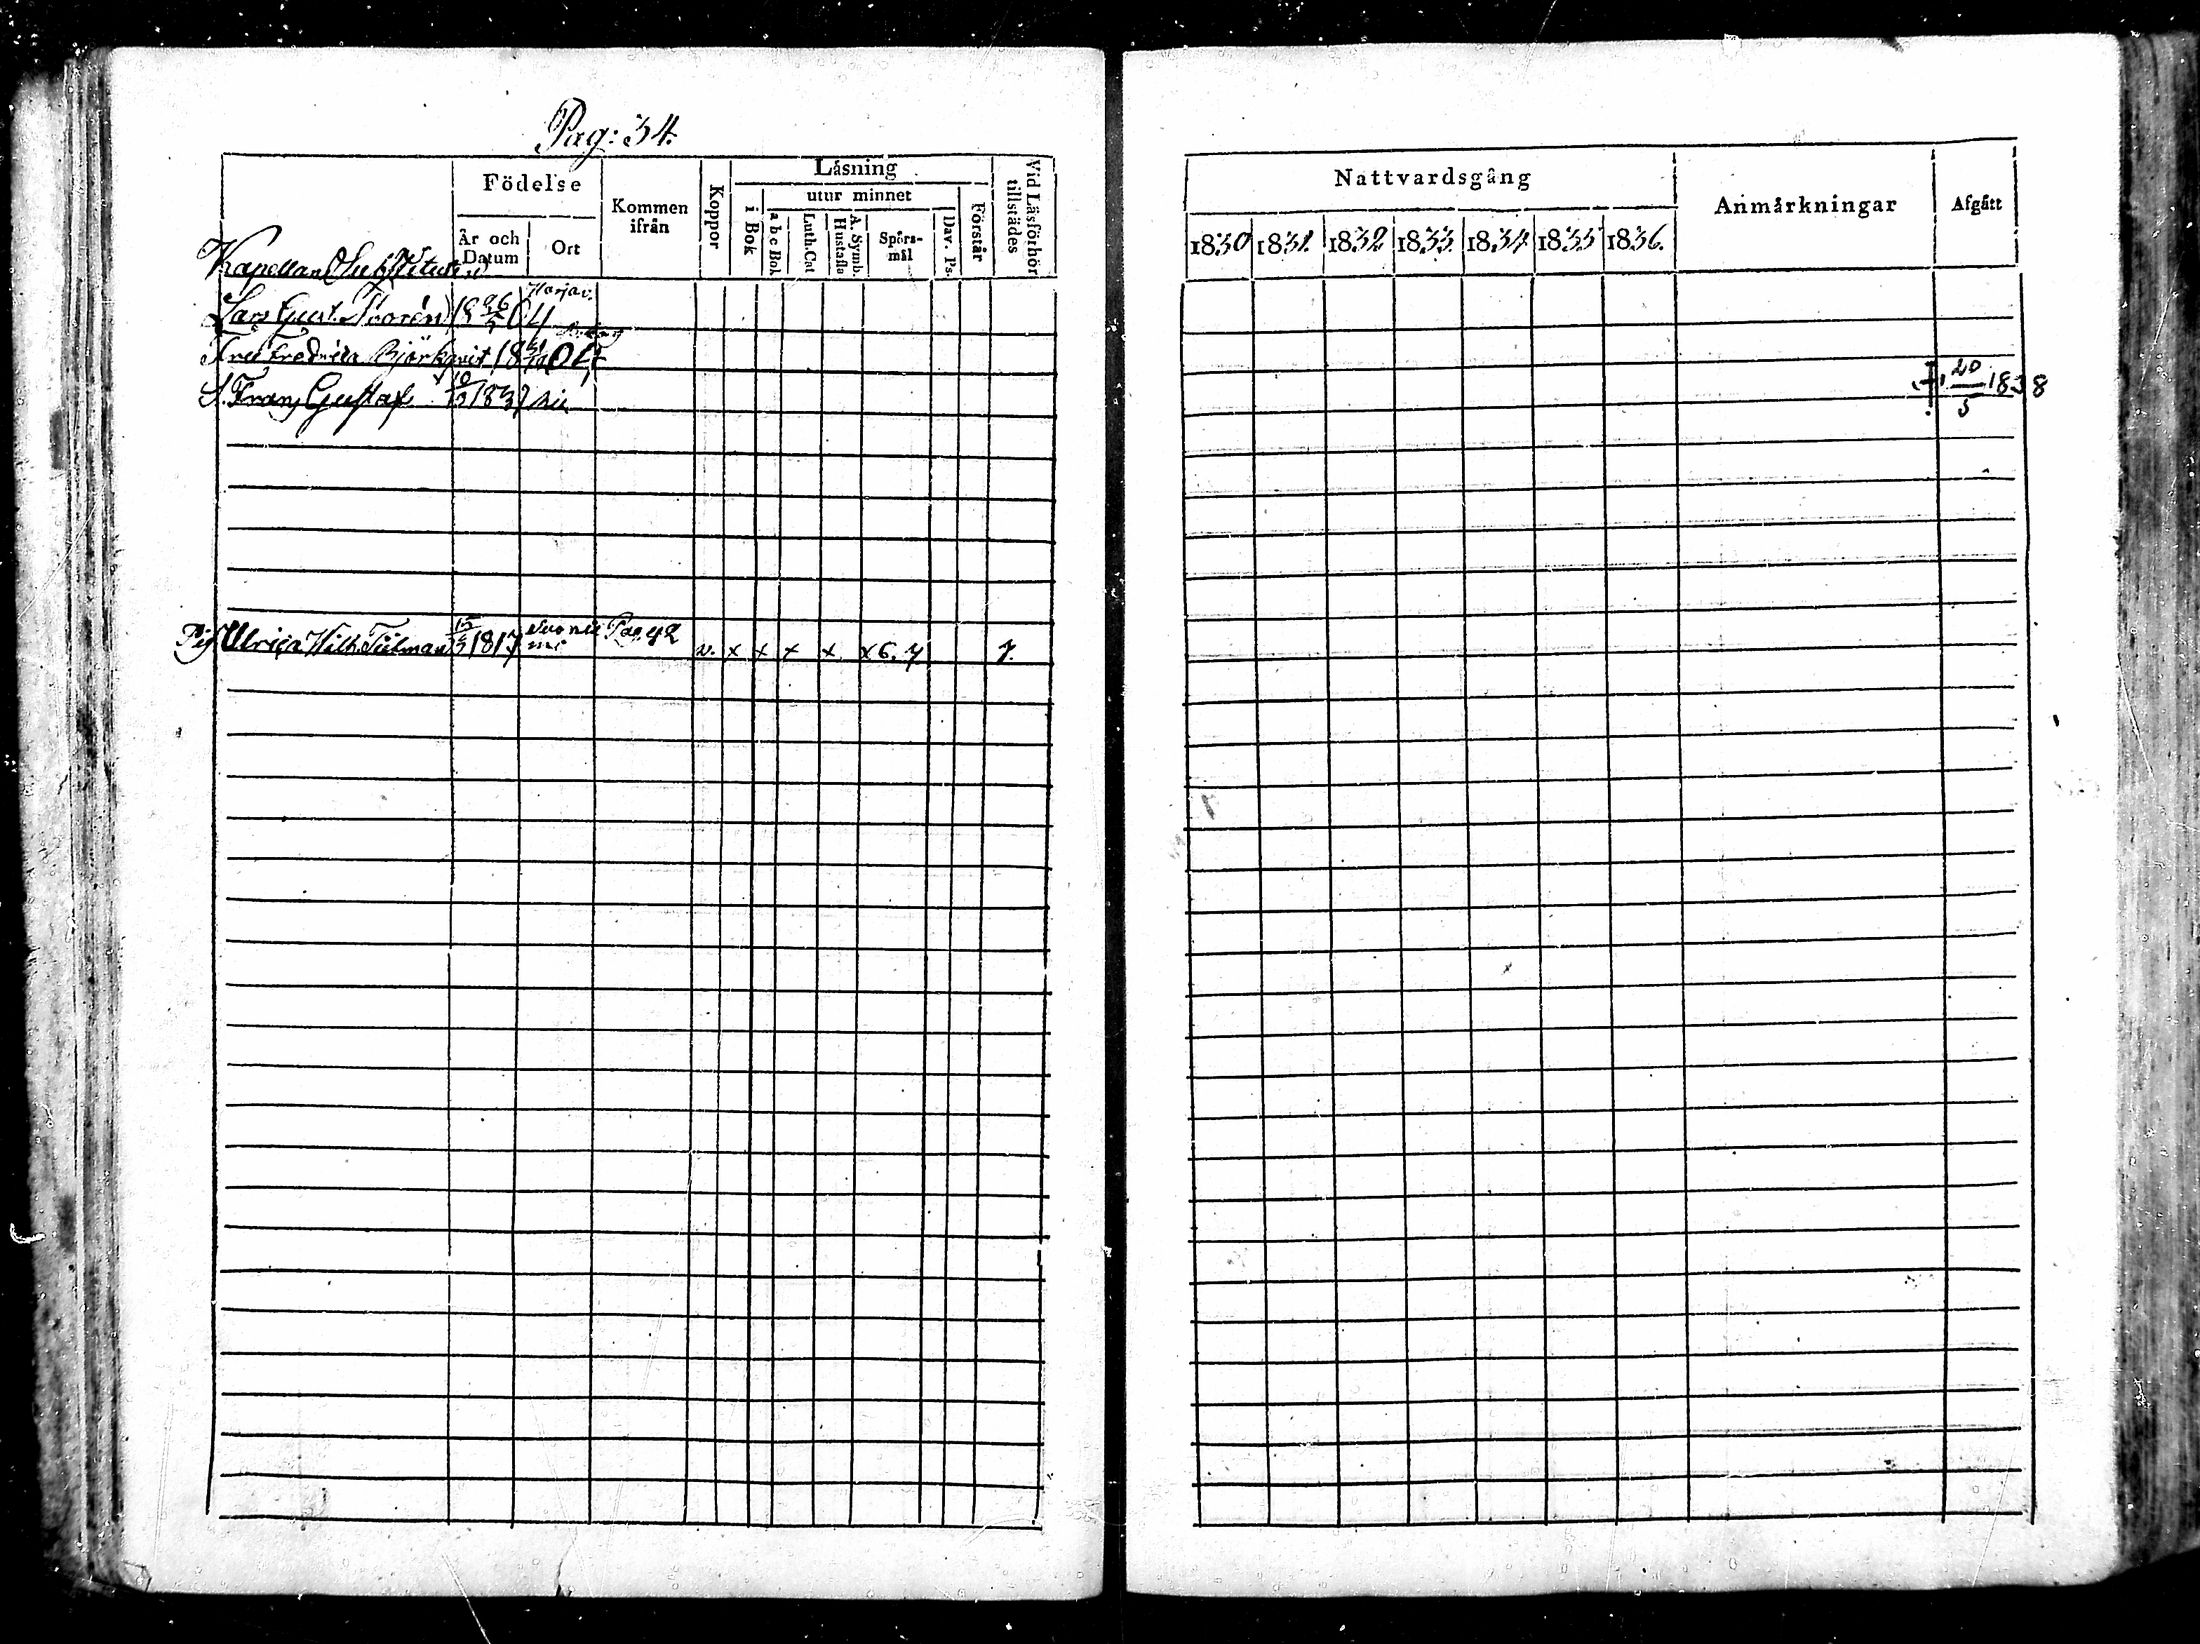 Pag: 34.
Födelse
År och Datum
Ort
Kommen ifrån
Koppor
Läsning
i Bok
utur minnet
a b c Bok
Luth. Cat
A. Symb. Hustafla
Spörsmål
Dav. Ps.
Förstår
Vid Läsförhör tillstädes
Kapellans Substituten
Lars Gust. Thorén 18 26/5 04 Harjav.
Fru Fredrica Björkqvist 18 04
S. Franz Gustaf 1837
Pig. Ulrica Wilh. Tielman 1817 Pag 42 v. x x x x x 6. 7 7.
Nattvardsgång
Anmärkningar
Afgått
1830 1831. 1832 1833 1834 1835 1836.
† 20/5 1838